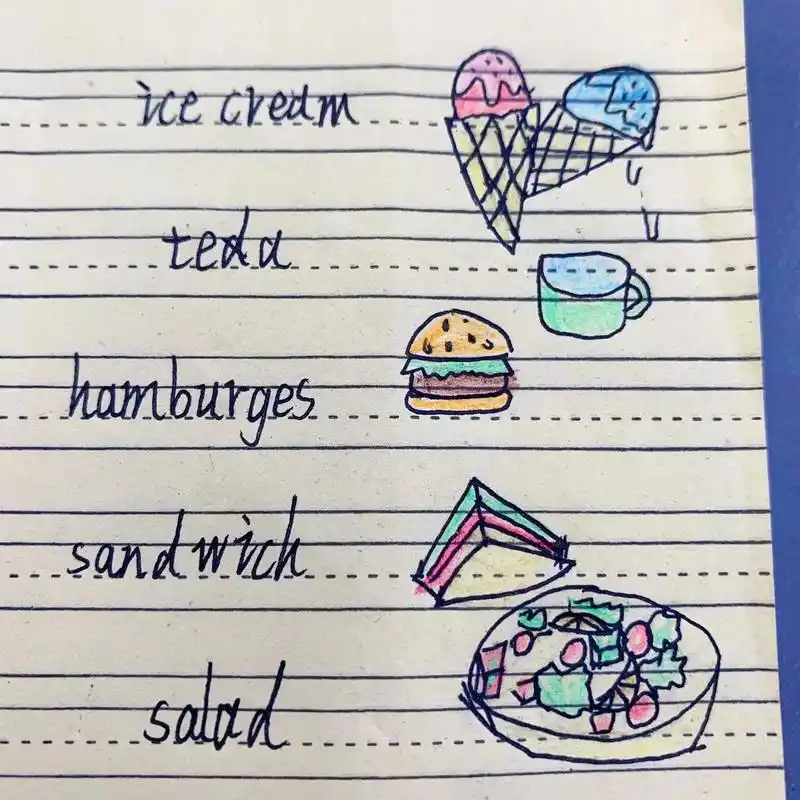 ice cream
teda
hamburges
sandwich
salad